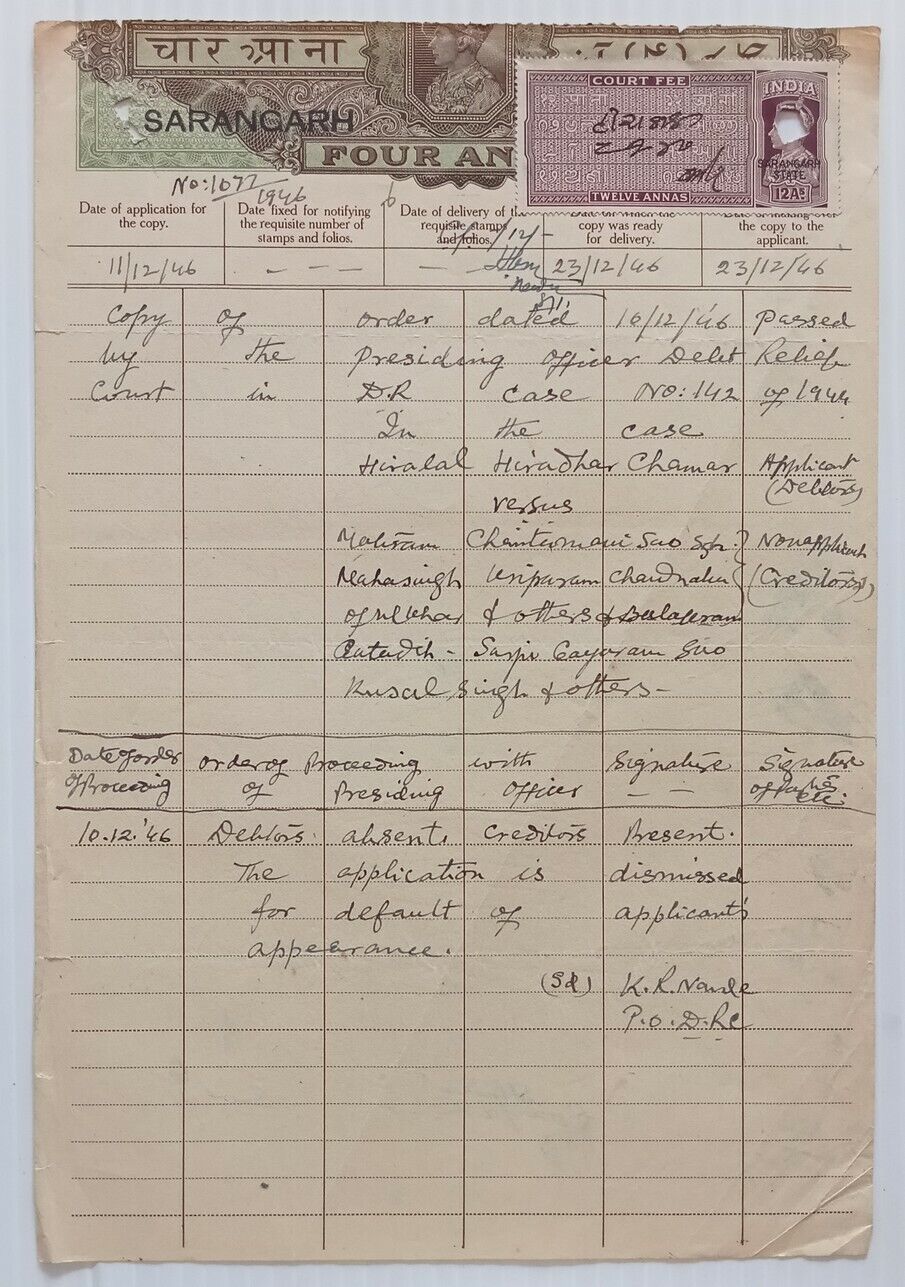 चार आना
SARANGARH
FOUR AN
COURT FEE
TWELVE ANNAS
INDIA
SARANGARH
STATE
12As
No: 1077
1946
Date of application for
the copy.
Date fixed for notifying
the requisite number of
stamps and folios.
Date of delivery of the
requisite stamps
and folios.
copy was ready
for delivery.
the copy to the
applicant.
11/12/46 - - - - - 23/12/46 23/12/46
Copy of order dated 10/12/46 passed
by the Presiding officer Debt Relief
Court in D.R case No: 142 of 1944
In the case
Hiralal Hiradhar Chamar Applicant
(Debtors)
versus
Chintamani Sao Nonapplicant
Mahasingh (Creditors)
& others &
Gayaram Sao
Kusal Singh & others -
Date of order order of Proceeding with Signature Signature
of Proceeding of Presiding officer - - of parties
etc.
10.12.'46 Debtors absent. Creditors Present.
The application is dismissed
for default of applicant's
appearance.
(Sd) K.R.
P.O.D.R.C